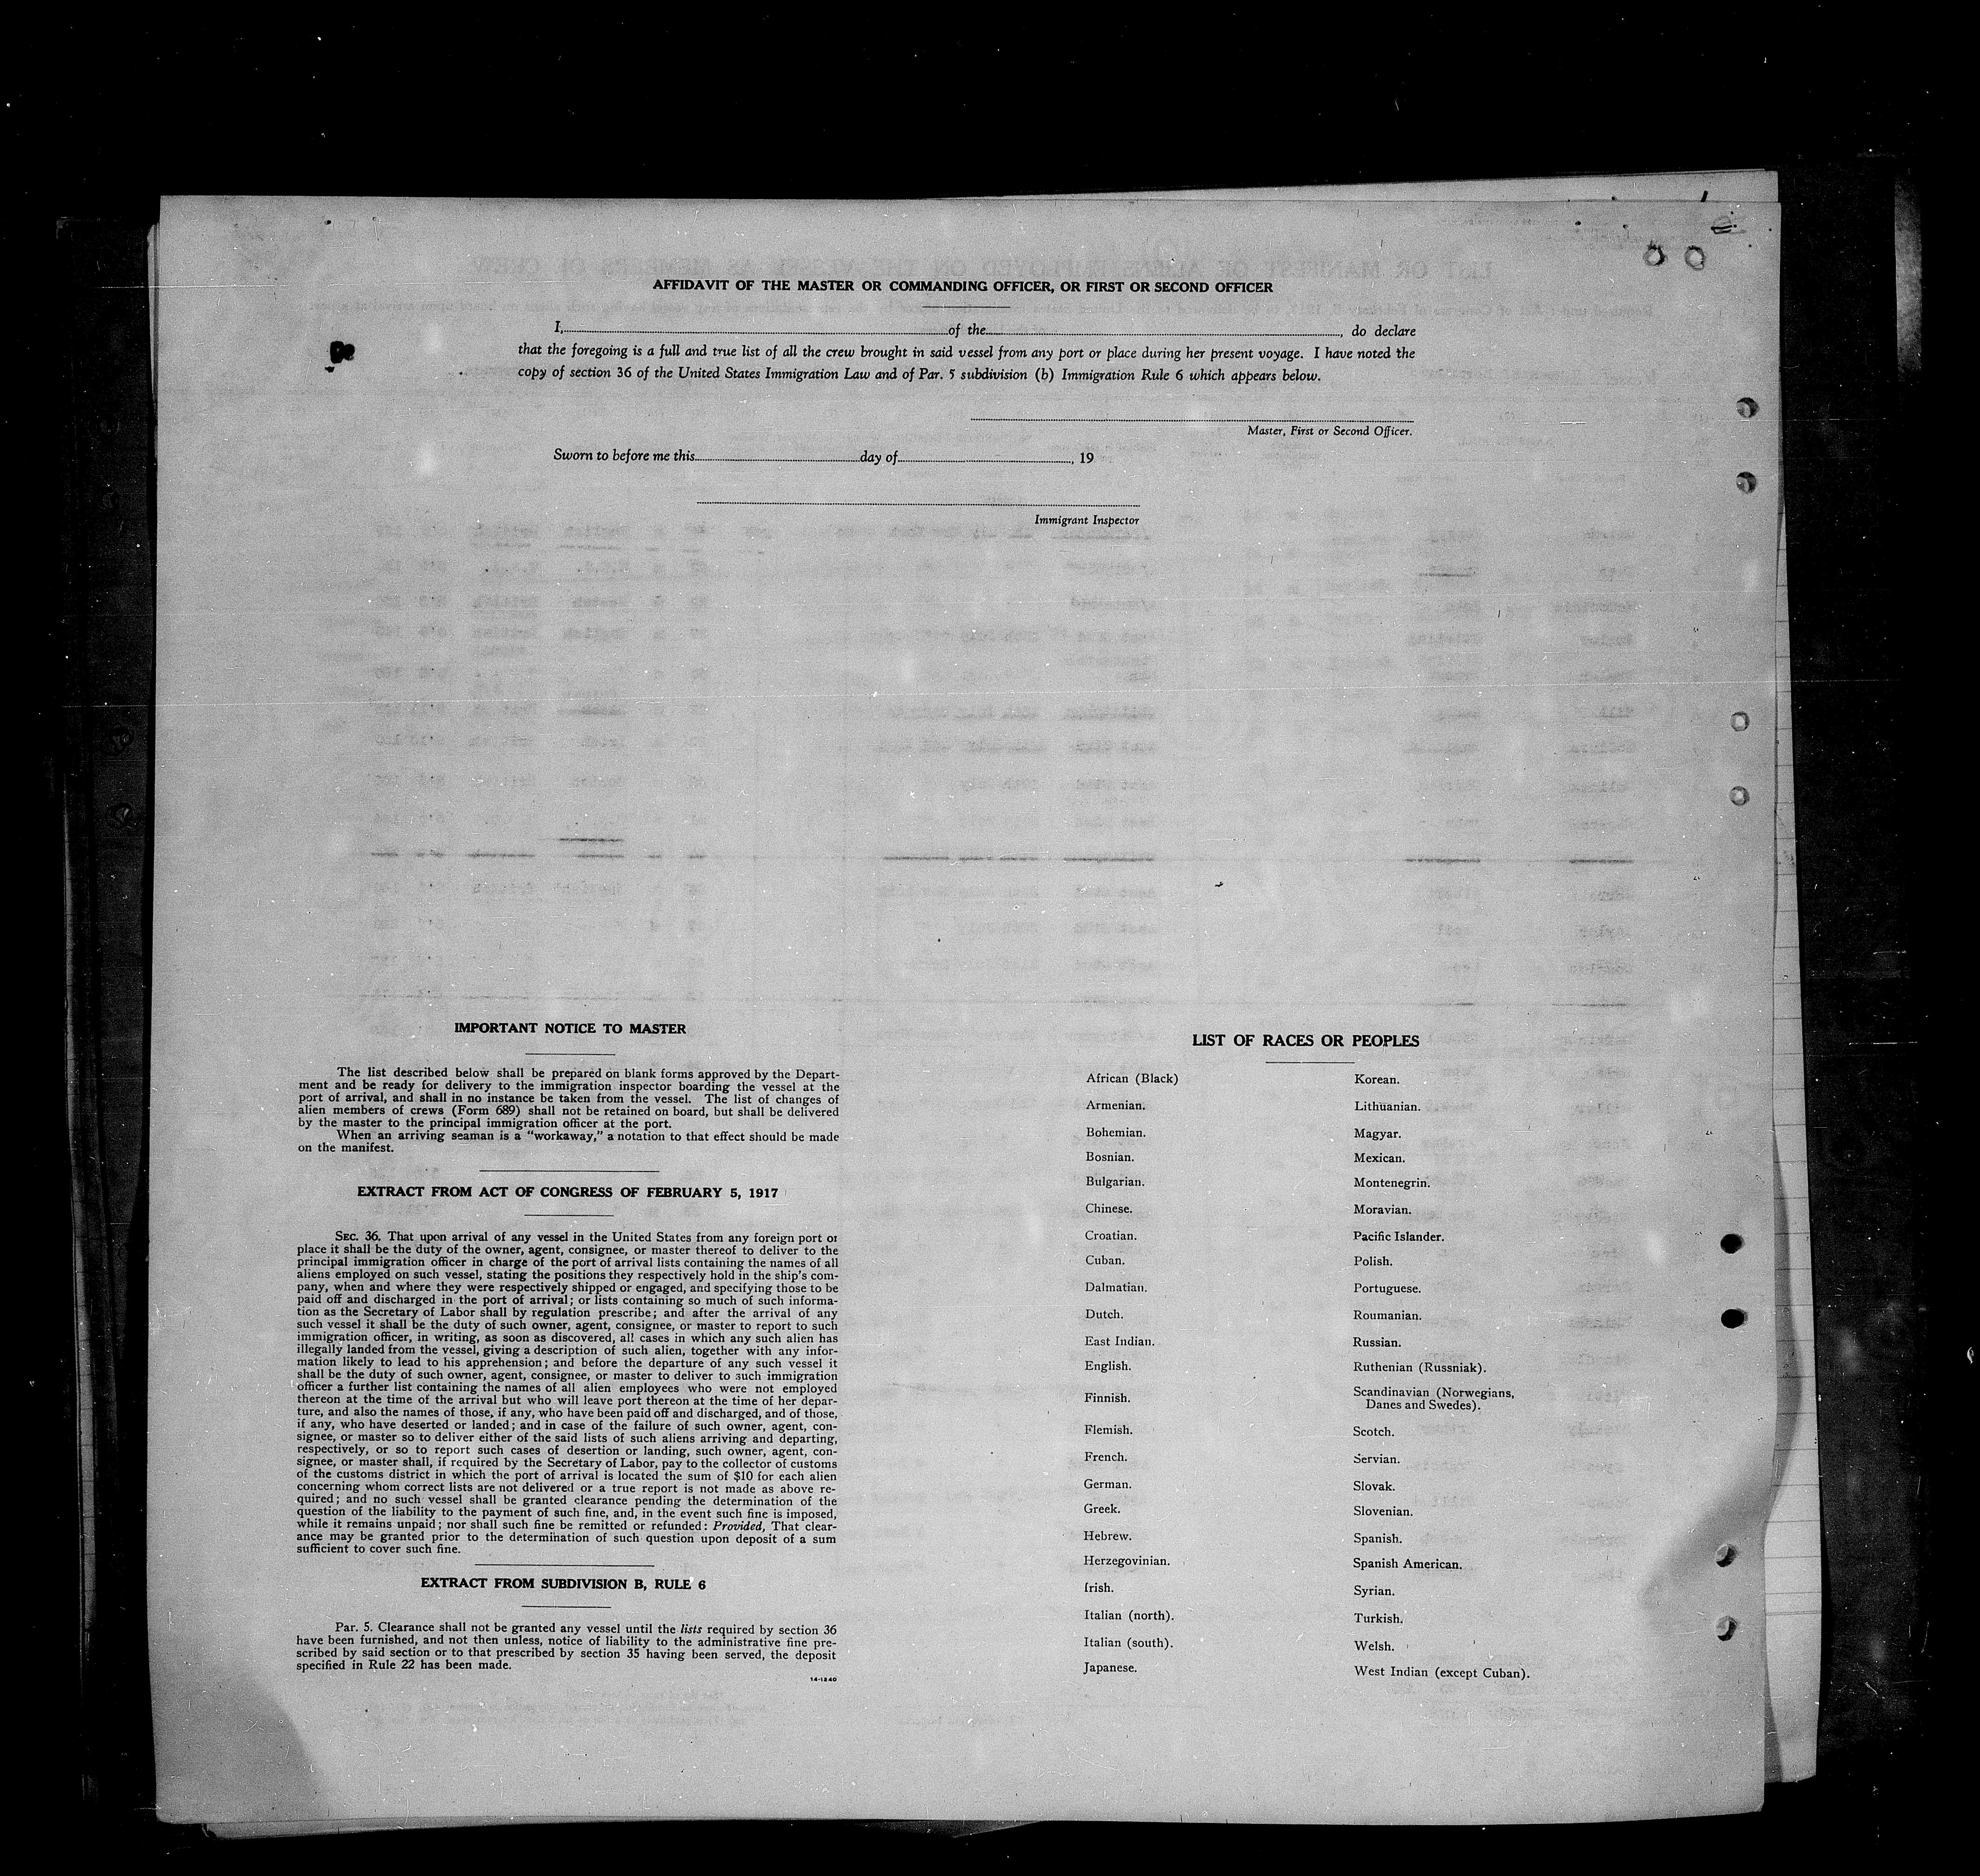 AFFIDAVIT OF THE MASTER OR COMMANDING OFFICER, OR FIRST OR SECOND OFFICER
I, of the , do declare
that the foregoing is a full and true list of all the crew brought in said vessel from any port or place during her present voyage. I have noted the
copy of section 36 of the United States Immigration Law and of Par. 5 subdivision (b) Immigration Rule 6 which appears below.
Master, First or Second Officer.
Sworn to before me this day of , 19
Immigrant Inspector
IMPORTANT NOTICE TO MASTER
The list described below shall be prepared on blank forms approved by the Depart-
ment and be ready for delivery to the immigration inspector boarding the vessel at the
port of arrival, and shall in no instance be taken from the vessel. The list of changes of
alien members of crews (Form 689) shall not be retained on board, but shall be delivered
by the master to the principal immigration officer at the port.
When an arriving seaman is a "workaway," a notation to that effect should be made
on the manifest.
EXTRACT FROM ACT OF CONGRESS OF FEBRUARY 5, 1917
SEC. 36. That upon arrival of any vessel in the United States from any foreign port or
place it shall be the duty of the owner, agent, consignee, or master thereof to deliver to the
principal immigration officer in charge of the port of arrival lists containing the names of all
aliens employed on such vessel, stating the positions they respectively hold in the ship's com-
pany, when and where they were respectively shipped or engaged, and specifying those to be
paid off and discharged in the port of arrival; or lists containing so much of such informa-
tion as the Secretary of Labor shall by regulation prescribe; and after the arrival of any
such vessel it shall be the duty of such owner, agent, consignee, or master to report to such
immigration officer, in writing, as soon as discovered, all cases in which any such alien has
illegally landed from the vessel, giving a description of such alien, together with any infor-
mation likely to lead to his apprehension; and before the departure of any such vessel it
shall be the duty of such owner, agent, consignee, or master to deliver to such immigration
officer a further list containing the names of all alien employees who were not employed
thereon at the time of the arrival but who will leave port thereon at the time of her depar-
ture, and also the names of those, if any, who have been paid off and discharged, and of those,
if any, who have deserted or landed; and in case of the failure of such owner, agent, con-
signee, or master so to deliver either of the said lists of such aliens arriving and departing,
respectively, or so to report such cases of desertion or landing, such owner, agent, con-
signee, or master shall, if required by the Secretary of Labor, pay to the collector of customs
of the customs district in which the port of arrival is located the sum of $10 for each alien
concerning whom correct lists are not delivered or a true report is not made as above re-
quired; and no such vessel shall be granted clearance pending the determination of the
question of the liability to the payment of such fine, and, in the event such fine is imposed,
while it remains unpaid; nor shall such fine be remitted or refunded: Provided, That clear-
ance may be granted prior to the determination of such question upon deposit of a sum
sufficient to cover such fine.
EXTRACT FROM SUBDIVISION B, RULE 6
Par. 5. Clearance shall not be granted any vessel until the lists required by section 36
have been furnished, and not then unless, notice of liability to the administrative fine pre-
scribed by said section or to that prescribed by section 35 having been served, the deposit
specified in Rule 22 has been made.
14-1240
LIST OF RACES OR PEOPLES
African (Black)
Armenian.
Bohemian.
Bosnian.
Bulgarian.
Chinese.
Croatian.
Cuban.
Dalmatian.
Dutch.
East Indian.
English.
Finnish.
Flemish.
French.
German.
Greek.
Hebrew.
Herzegovinian.
Irish.
Italian (north).
Italian (south).
Japanese.
Korean.
Lithuanian.
Magyar.
Mexican.
Montenegrin.
Moravian.
Pacific Islander.
Polish.
Portuguese.
Roumanian.
Russian.
Ruthenian (Russniak).
Scandinavian (Norwegians,
Danes and Swedes).
Scotch.
Servian.
Slovak.
Slovenian.
Spanish.
Spanish American.
Syrian.
Turkish.
Welsh.
West Indian (except Cuban).